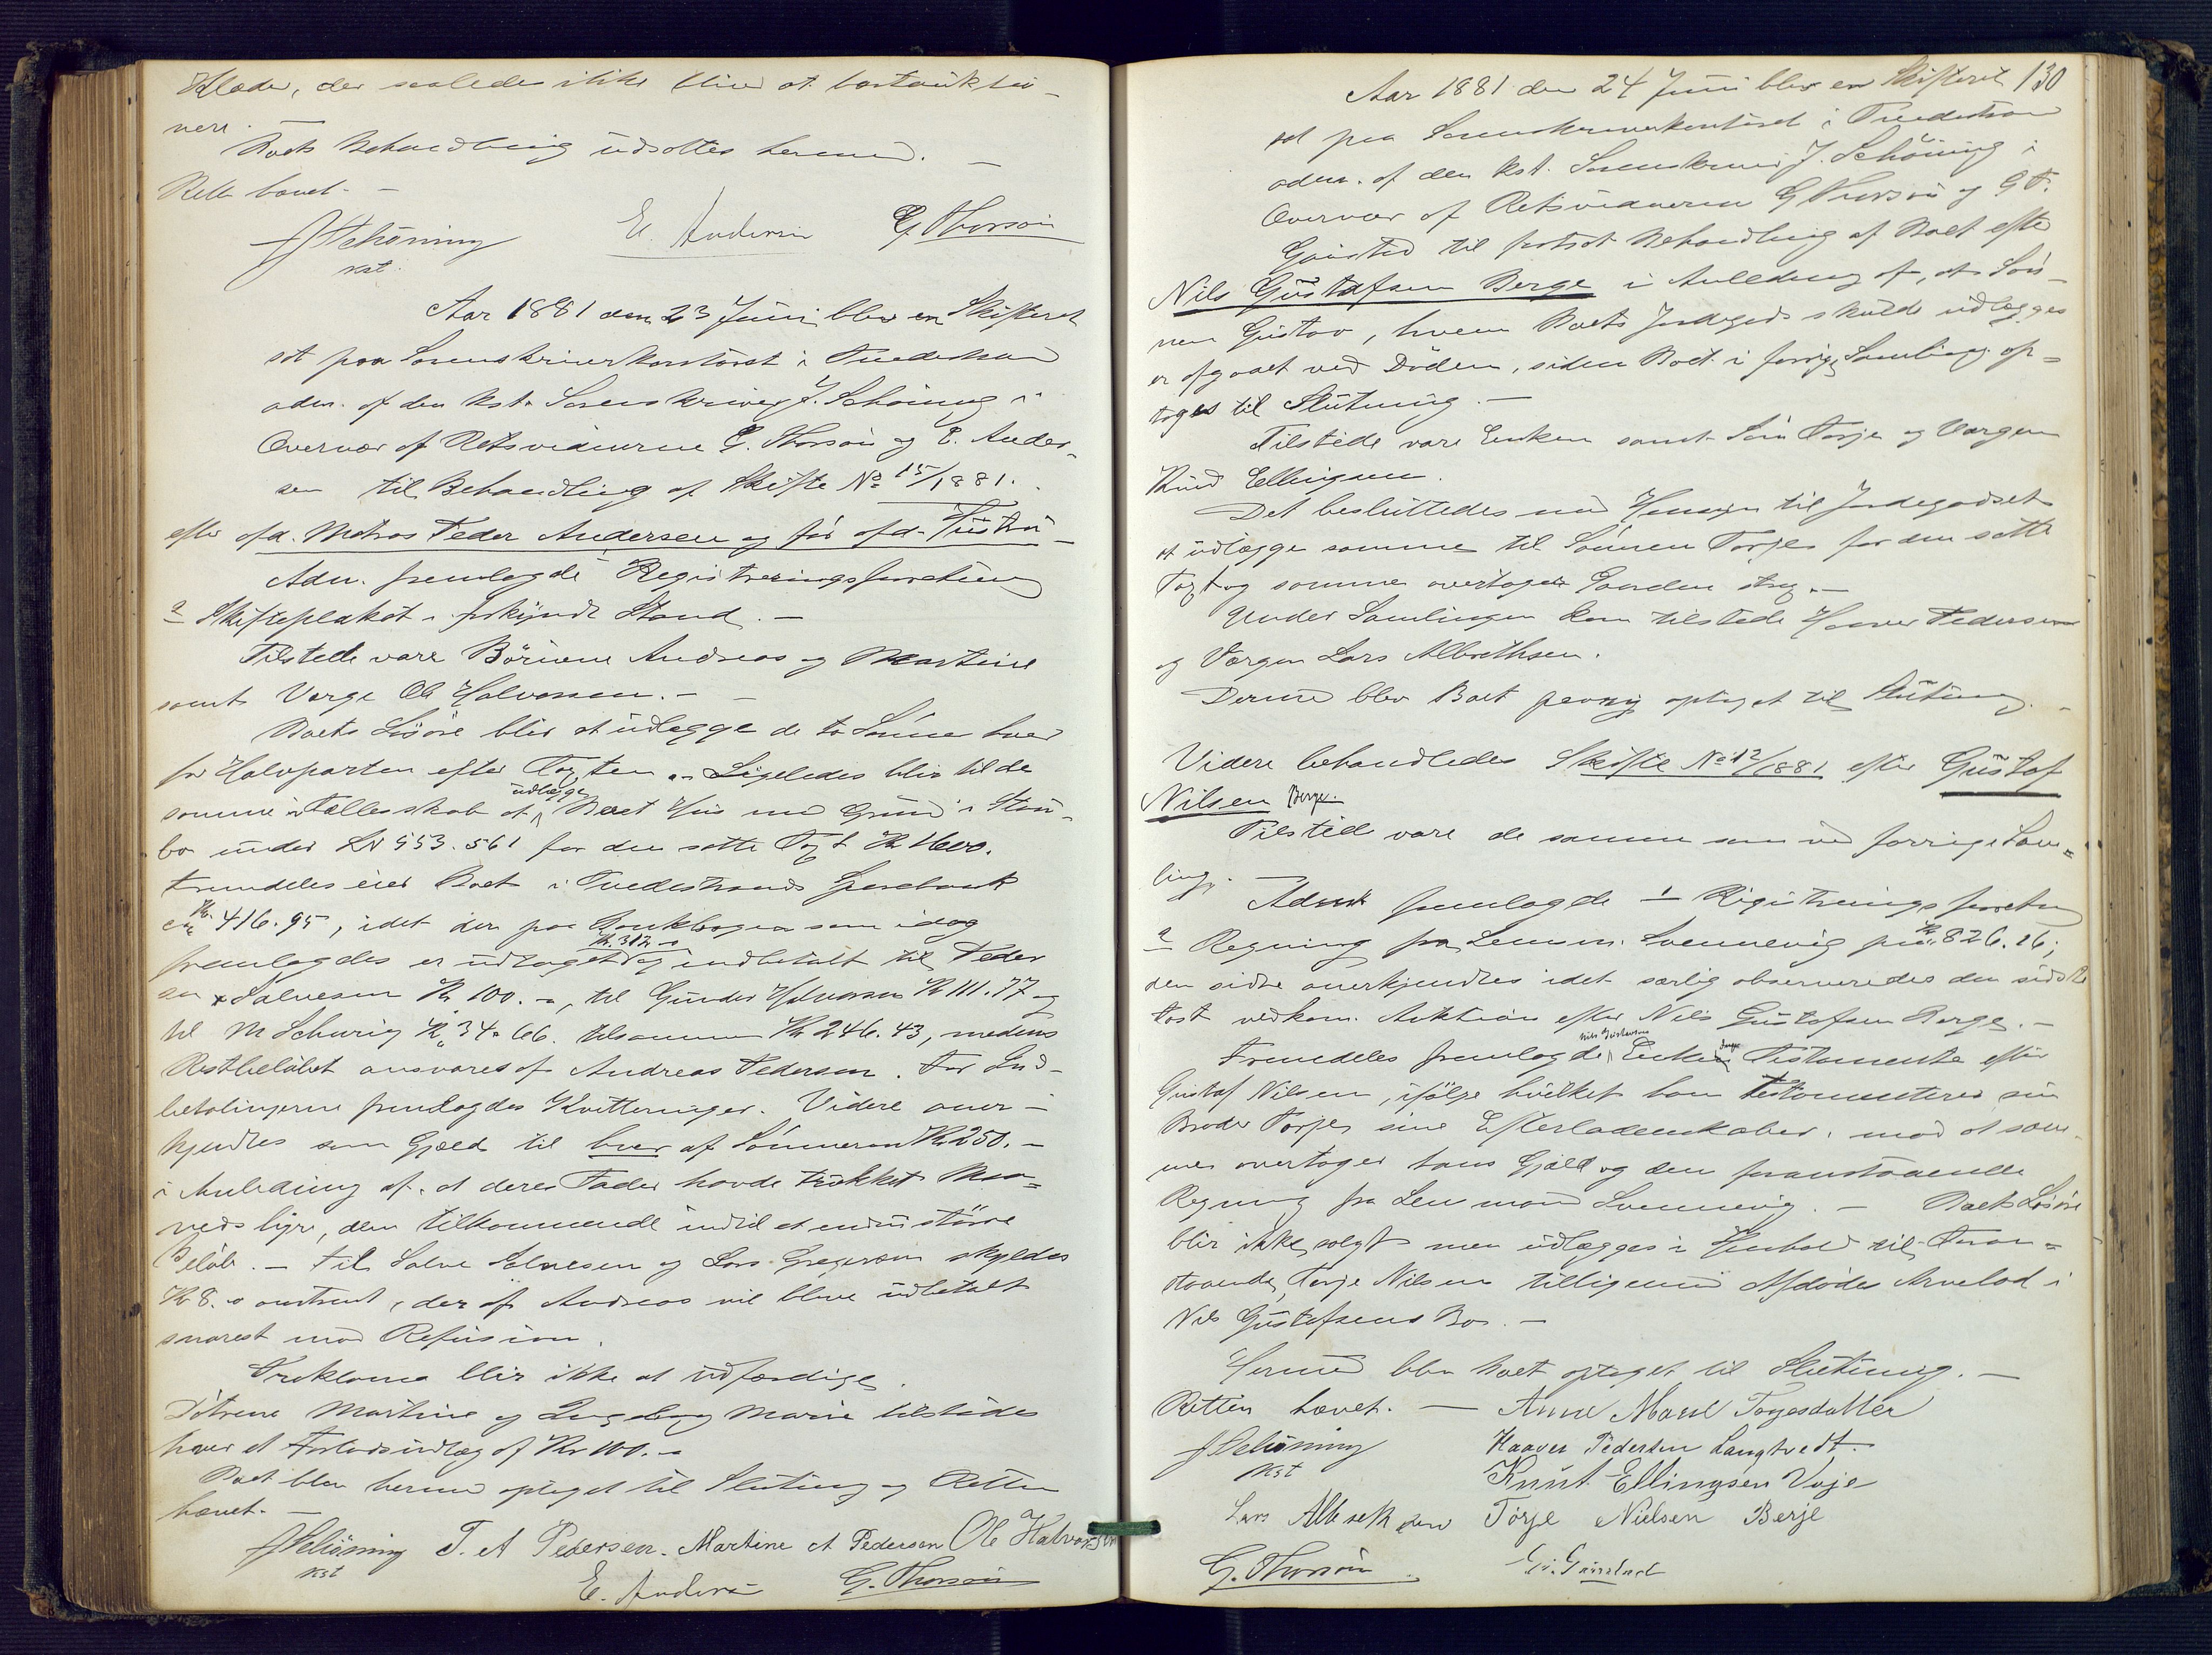 Klæder, der saaledes ikke blive at bortauktio-
nere.
Boets Behandling udsattes hermed. —
Retten hævet. —
JSchöning E. Andersen G. Thorsøn
kst.
Aar 1881 den 23 Juni blev en Skifteret
sat paa Sorenskriverkontoret i Tvedestrand
adm. af den kst. Sorenskriver J. Schöning i
Overvær af Retsvidnerne G. Thorsøn og E. Ander-
sen til Behandling af Skifte No 15/1881.
efter afd. Matros Peder Andersen og før afd. Hustru —
Adm. fremlagde Registreringsforretning
2 Skifteplakat i forkyndt Stand. —
Tilstede vare Börnene Andreas og Martine
samt Værge Ole Halvorsen. —
Boets Lösöre blir at udlægge de to Sönner hver
for Halvparten efter Taxten. Ligeledes blir til de
samme i Fælleskab at udlægge Boets Hus med Grund i
bo under LN 553. 561 for den satte Taxt Kr 1600.
Fremdeles eier Boet i Tvedestrands Sparebank
Kr. 416.95, idet der paa Bankbogen som idag
fremlagdes er udtaget Kr. 312 og indbetalt til Peder
Salvesen Kr 100. –, til Gunder Halvorsen Kr 111.77 og
til M Schurig Kr 34.66. tilsammen Kr 246.43, medens
Restbelöbet ansvares af Andreas Pedersen. For Ind-
betalingerne fremlagdes Kvitteringer. Videre aner-
kjendtes som Gjæld til hver af Sönnerne Kr 250. –
i Anledning af, at deres Fader havde trukket Maa-
nedshyre, dem tilkommende indtil et endnu större
Belöb. — Til Salve Salvesen og Lars Gregersen skyldes
Kr 8. – omtrent, der af Andreas vil blive udbetalt
snarest mod Refusion.
Proklama blir ikke at udfærdige.
Dötrene Martine og Ingeborg Marie tilstodes
hver et Forlodsudlæg af Kr 100. –
Boet blev hermed optaget til Slutning og Retten
hævet. —
JSchöning T. A Pedersen. Martine A Pedersen Ole Halvorsen
kst E. Andersen G. Thorsøn
130
Aar 1881 den 24 Juni blev en Skifteret
sat paa Sorenskriverkontoret i Tvedestrand
adm. af den kst. Sorenskriver J. Schöning i
Overvær af Retsvidnerne G Thorsøn og G
til fortsat Behandling af Boet efter
Nils Gustafsen Berge i Anledning af, at Sön-
nen Gustav, hvem Boets Jordegods skulde udlægges
er afgaaet ved Döden, siden Boet i forrige Samling op-
toges til Slutning. —
Tilstede vare Enken samt Sön Torje og Værgen
Knud Ellingsen.
Det besluttedes med Hensyn til Jordegodset
at udlægge samme til Sönnen Torje for den satte
Taxt og samme overtager Gaarden strax. —
Under Samlingen kom tilstede Haaver Pedersen
og Værgen Lars Albrethsen.
Dermed blev Boet paany optaget til Slutning. —
Videre behandledes Skifte No 12/1881 efter Gustaf
Nilsen Berge.
Tilstede vare de samme som ved forrige Sam-
ling.
Adm fremlagde 1 Registreringsforretning
2 Regning fra Lensm. Svennevig paa Kr 826.26;
den sidste anerkjendtes idet særlig observeredes den sidste
Post vedkom. Auktion efter Nils Gustafsen Berge. —
Fremdeles fremlagde Nils Gustavsens Enke Testamente efter
Gustaf Nilsen, ifölge hvilket han testamenterer sin
Broder Torje sine Efterladenskaber, mod at sam-
me overtager hans Gjæld og den foranstaaende
Regning fra Lensmand Svennevig. — Boets Lösöre
blir ikke solgt men udlægges i Henhold til Foran-
staaende, Torje Nilsen tilligemed Afdödes Arvelod i
Nils Gustafsens Bo. —
Hermed blev Boet optaget til Slutning. —
Retten hævet. — Anne Marie Torjesdatter
JSchöning Haaver Pedersen Langtvedt.
kst Knut Ellingsen Voje
Lars Albretsen Torje Nielsen Berje
G. Thorsøn